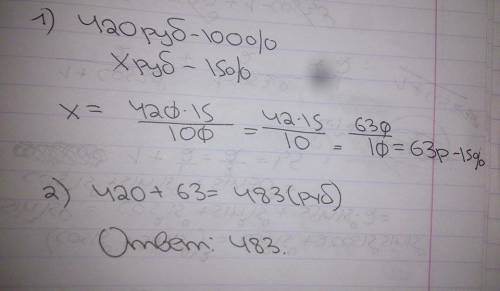 1) 420 руб - 100%
х руб - 15%
х = 420·15/100 = 42·15/10 = 630/10 = 63р - 15%
2) 420 + 63 = 483 (руб)
Ответ: 483.